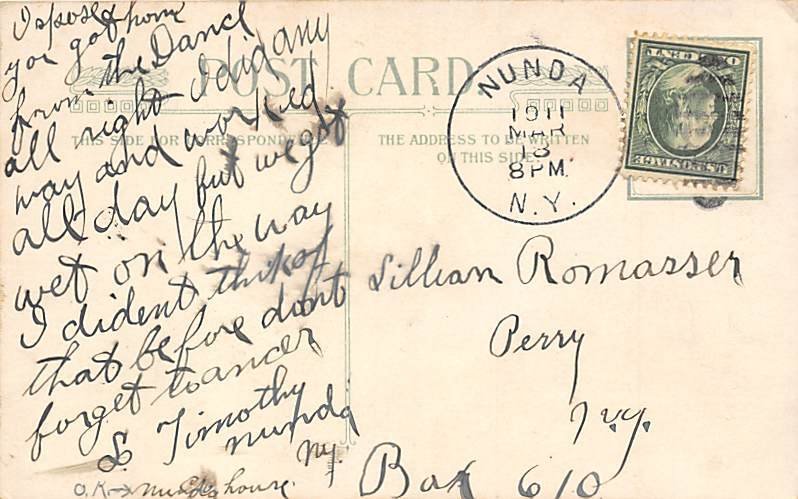 I spose
you got home
from the Dance
all right I did any
way and worked
all day but we got
wet on the way
I dident thik of
that before dont
forget to ancer
L Timothy
nunda
ny.
POST CARD
THIS SIDE FOR CORRESPONDENCE
THE ADDRESS TO BE WRITTEN
ON THIS SIDE
NUNDA
1911
MAR
18
8 PM
N.Y.
U.S. POSTAGE
ONE CENT
Lillian Romasser
Perry
N.Y.
Box 610
O.K→
house